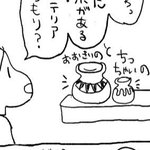 がある
テリア
もり?
おおきいの
と
ちっ
ちゃいの